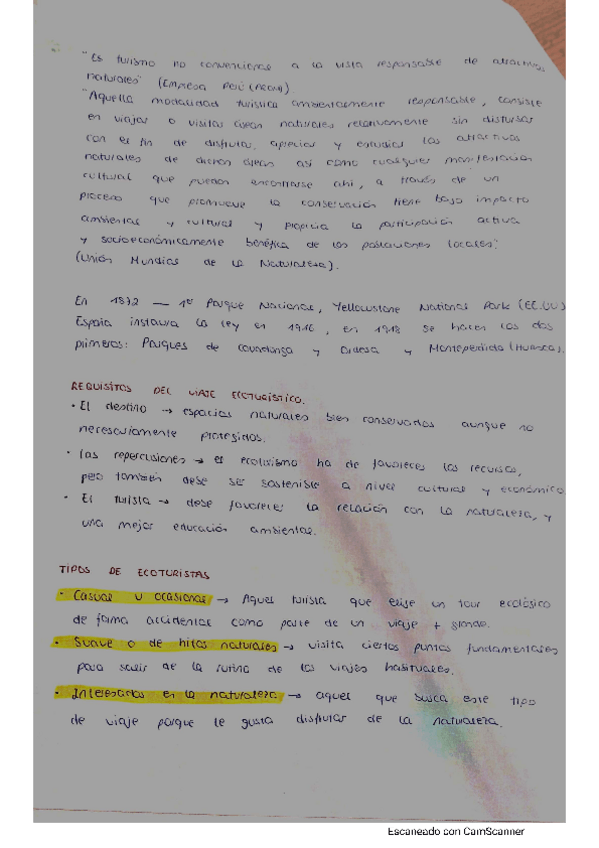 "Es turismo no convencional a la vista responsable de atractivos
naturales" (Empresa Perú
"Aquella modalidad turística ambientalmente responsable, consiste
en viajar o visitar áreas naturales relativamente sin disturbar
con el fin de disfrutar, apreciar y estudiar los atractivos
naturales de dichas áreas así como cualquier manifestación
cultural que puedan encontrarse ahí, a través de un
proceso que promueve la conservación tiene bajo impacto
ambiental y cultural y propicia la participación activa
y socioeconómicamente benéfica de las poblaciones locales".
(Unión Mundial de la Naturaleza).
En 1872 — 1er Parque Nacional, Yellowstone National Park (EE.UU)
España instaura la ley en 1916, en 1918 se hacen los dos
primeros: Parques de Covadonga y Ordesa y Monteperdido (Huesca).
REQUISITOS DEL VIAJE ECOTURÍSTICO.
· El destino → espacios naturales bien conservados aunque no
necesariamente protegidos.
· Las repercusiones → el ecoturismo ha de favorecer los recursos,
pero también debe ser sostenible a nivel cultural y económico
· El turista → debe favorecer la relación con la naturaleza, y
una mejor educación ambiental.
TIPOS DE ECOTURISTAS
· Casual u ocasional → Aquel turista que elige un tour ecológico
de forma accidental como parte de un viaje + grande.
· Suave o de hitos naturales → visita ciertos puntos fundamentales
para salir de la rutina de los viajes habituales.
· Interesados en la naturaleza → aquel que busca este tipo
de viaje porque le gusta disfrutar de la naturaleza.
Escaneado con CamScanner